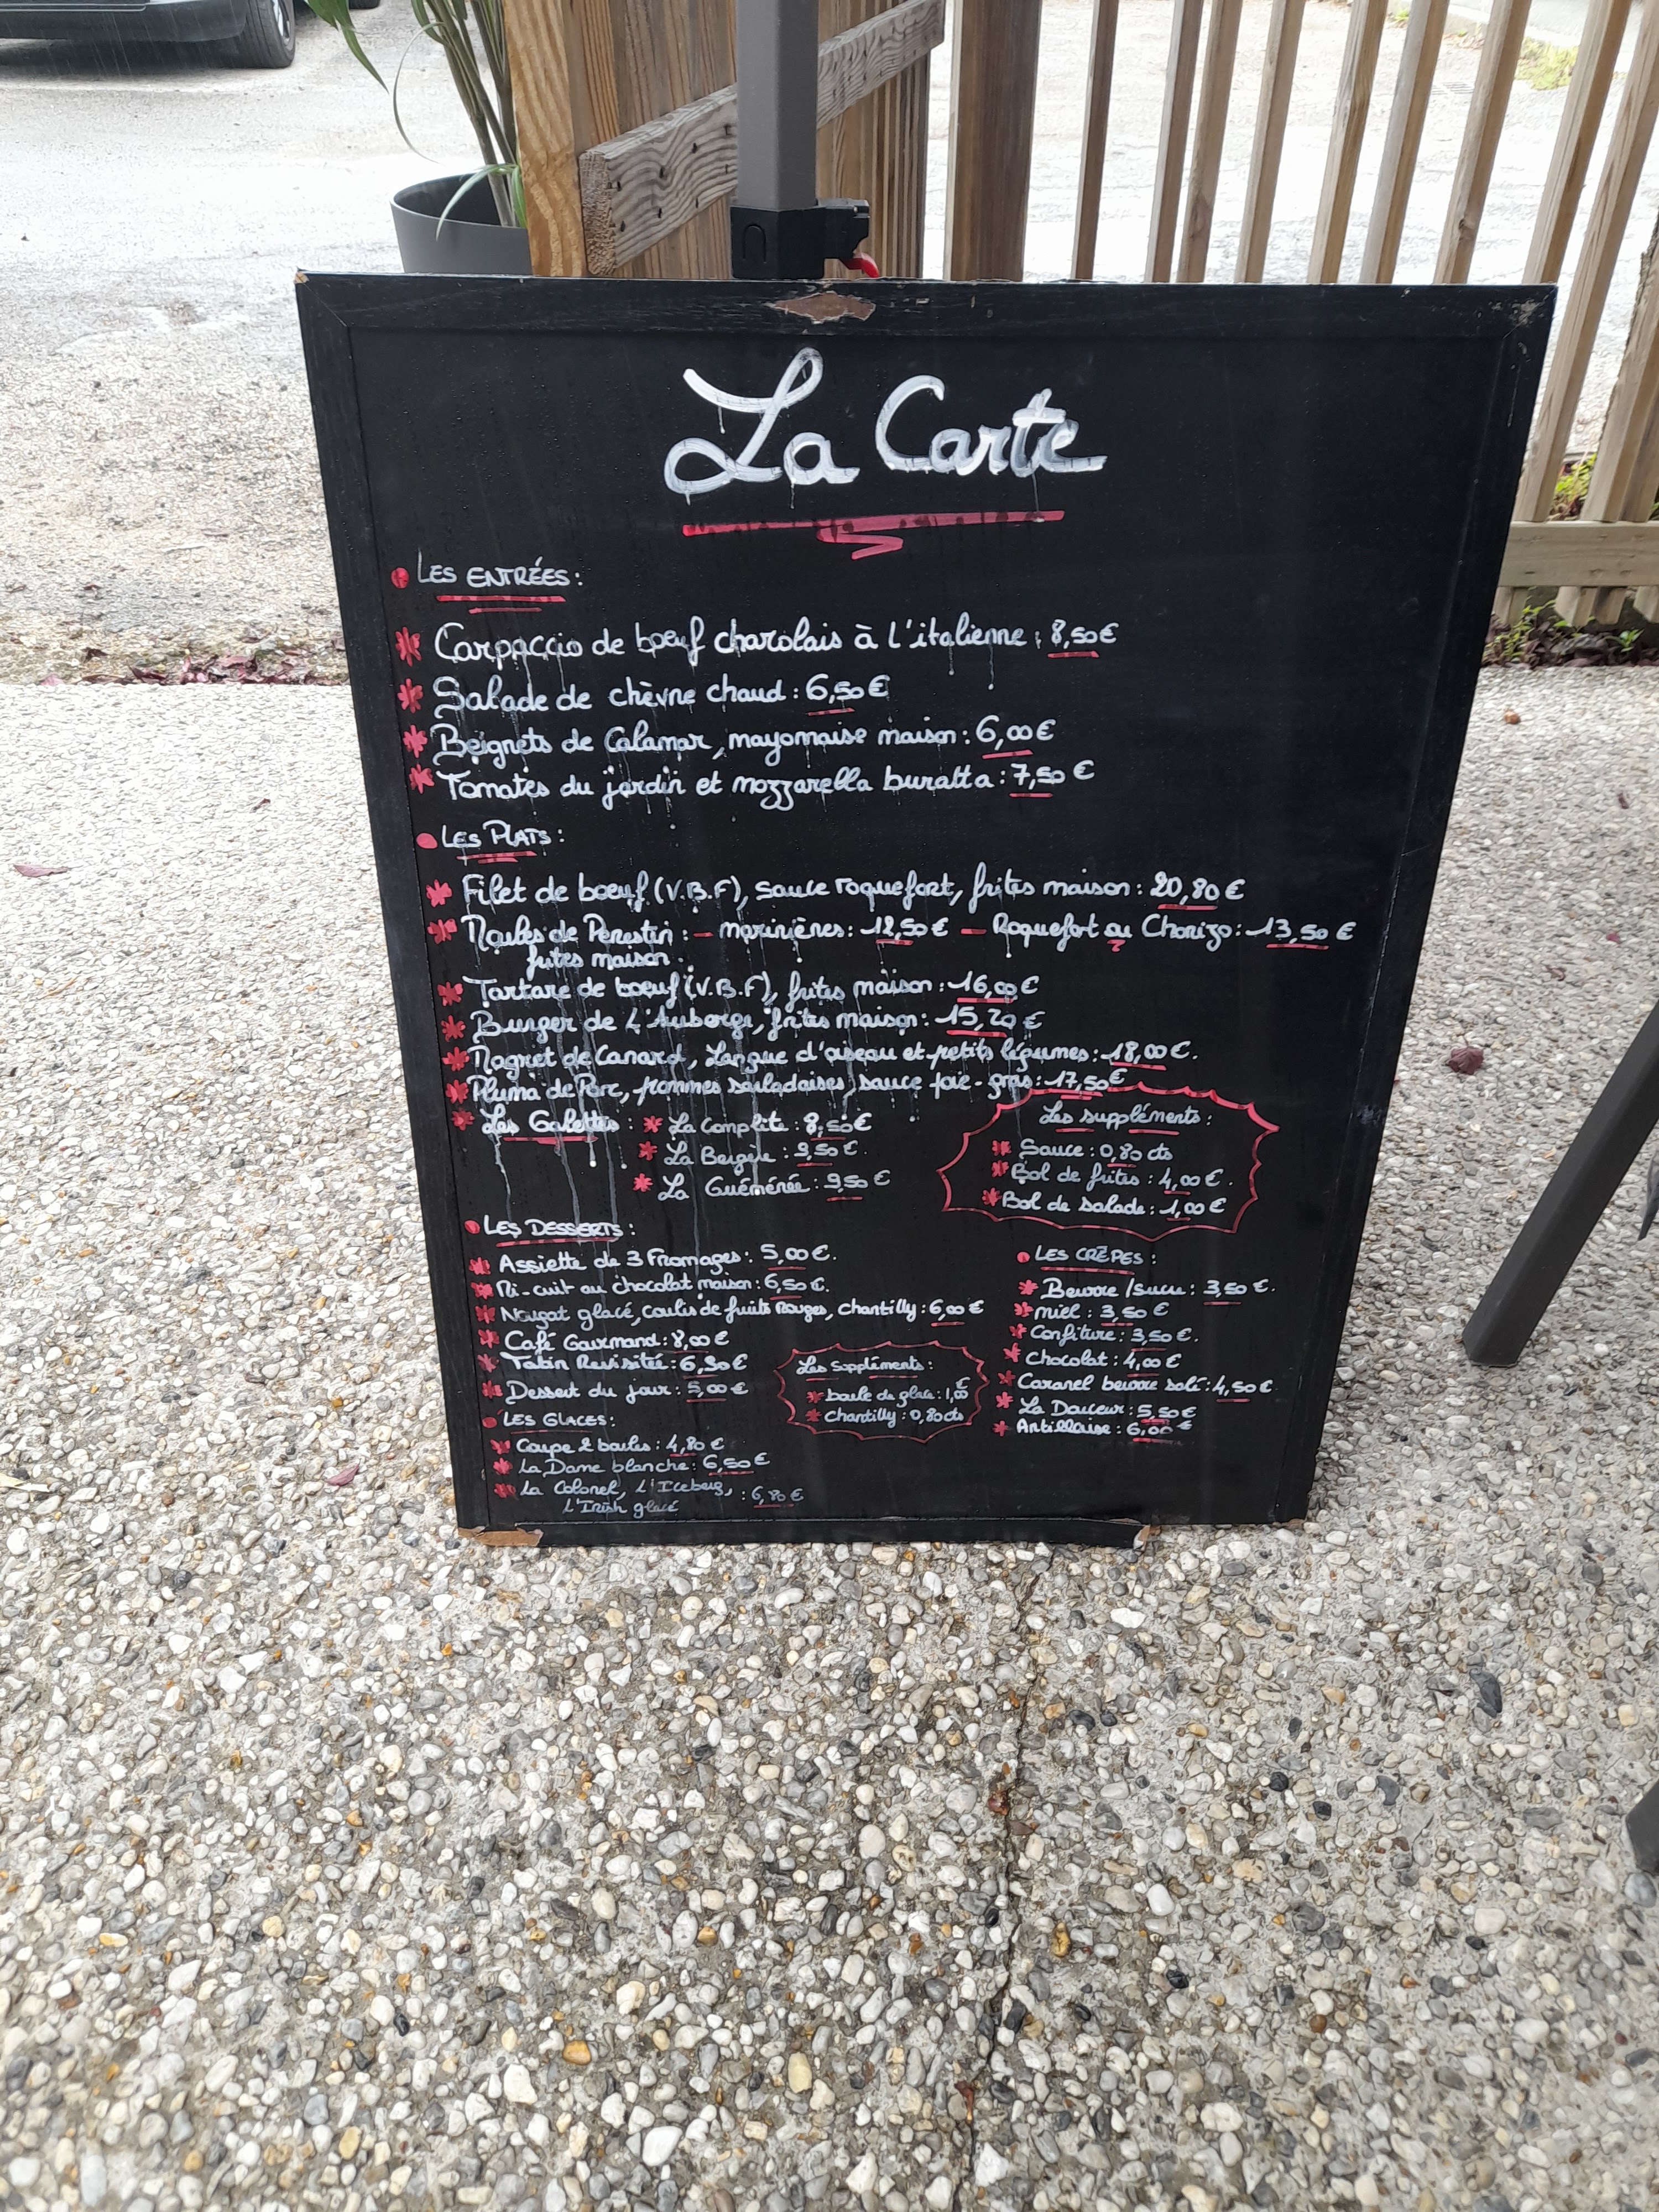 La Carte
LES ENTRÉES:
Carpaccio de boeuf charolais à l'italienne : 8,50€
Salade de chèvre chaud : 6,50€
Beignets de Calamar, mayonnaise maison : 6,00€
Tomates du jardin et mozzarella buratta : 7,50€
LES PLATS:
Filet de boeuf (V.B.F), sauce roquefort, frites maison : 20,80€
Moules de Penestin : - marinières : 12,50€ - Roquefort ou Chorizo : 13,50€
frites maison.
Tartare de boeuf (V.B.F), frites maison : 16,00€
Burger de L'Auberge, frites maison : 15,20€
Magret de Canard, Langue d'oiseau et petits légumes : 18,00€.
Pluma de Porc, pommes sarladaises, sauce foie-gras : 17,50€
Les Galettes : La Complète : 8,50€
La Bergère : 9,50€.
La Guéménée : 9,50€
Les suppléments :
Sauce : 0,80 cts
Bol de frites : 4,00€.
Bol de salade : 1,00€
LES DESSERTS:
Assiette de 3 Fromages : 5,00€.
Mi-cuit au chocolat maison : 6,50€.
Nougat glacé, coulis de fruits Rouges, chantilly : 6,00€
Café Gourmand : 8,00€
Tatin Revisitée : 6,80€
Dessert du jour : 5,00€
Les Suppléments :
boule de glace : 1,00€
Chantilly : 0,80cts
LES GLACES:
Coupe 2 boules : 4,80€
La Dame blanche : 6,50€
La Colonel, L'Iceberg, : 6,80€
L'Irish glacé
LES CRÊPES :
Beurre/sucre : 3,50€.
Miel : 3,50€
Confiture : 3,50€.
Chocolat : 4,00€
Caramel beurre salé : 4,50€
La Douceur : 5,50€
Antillaise : 6,00€